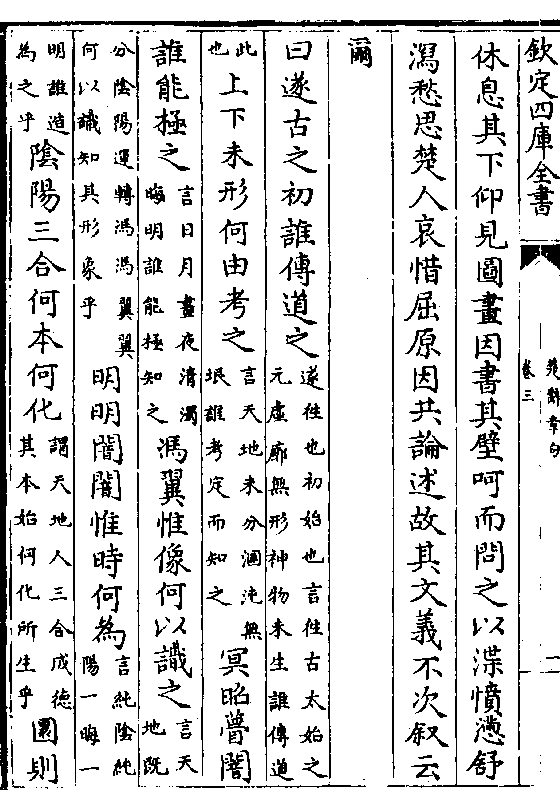 欽定四庫全書
楚辭章句
卷三
二
休息其下仰見圖畫因書其壁呵而問之以渫憤懣舒
瀉愁思楚人哀惜屈原因共論述故其文義不次叙云
爾
曰遂古之初誰傳道之遂往也初始也言往古太始之元虛廓無形神物未生誰傳道
此也上下未形何由考之言天地未分溷沌無垠誰考定而知之冥昭瞢闇
誰能極之言日月晝夜清濁晦明誰能極知之馮翼惟像何以識之言天地既
分陰陽運轉馮馮翼翼何以識知其形象乎明明闇闇惟時何為言純陰純陽一晦一
明誰造為之乎陰陽三合何本何化謂天地人三合成德其本始何化所生乎圜則